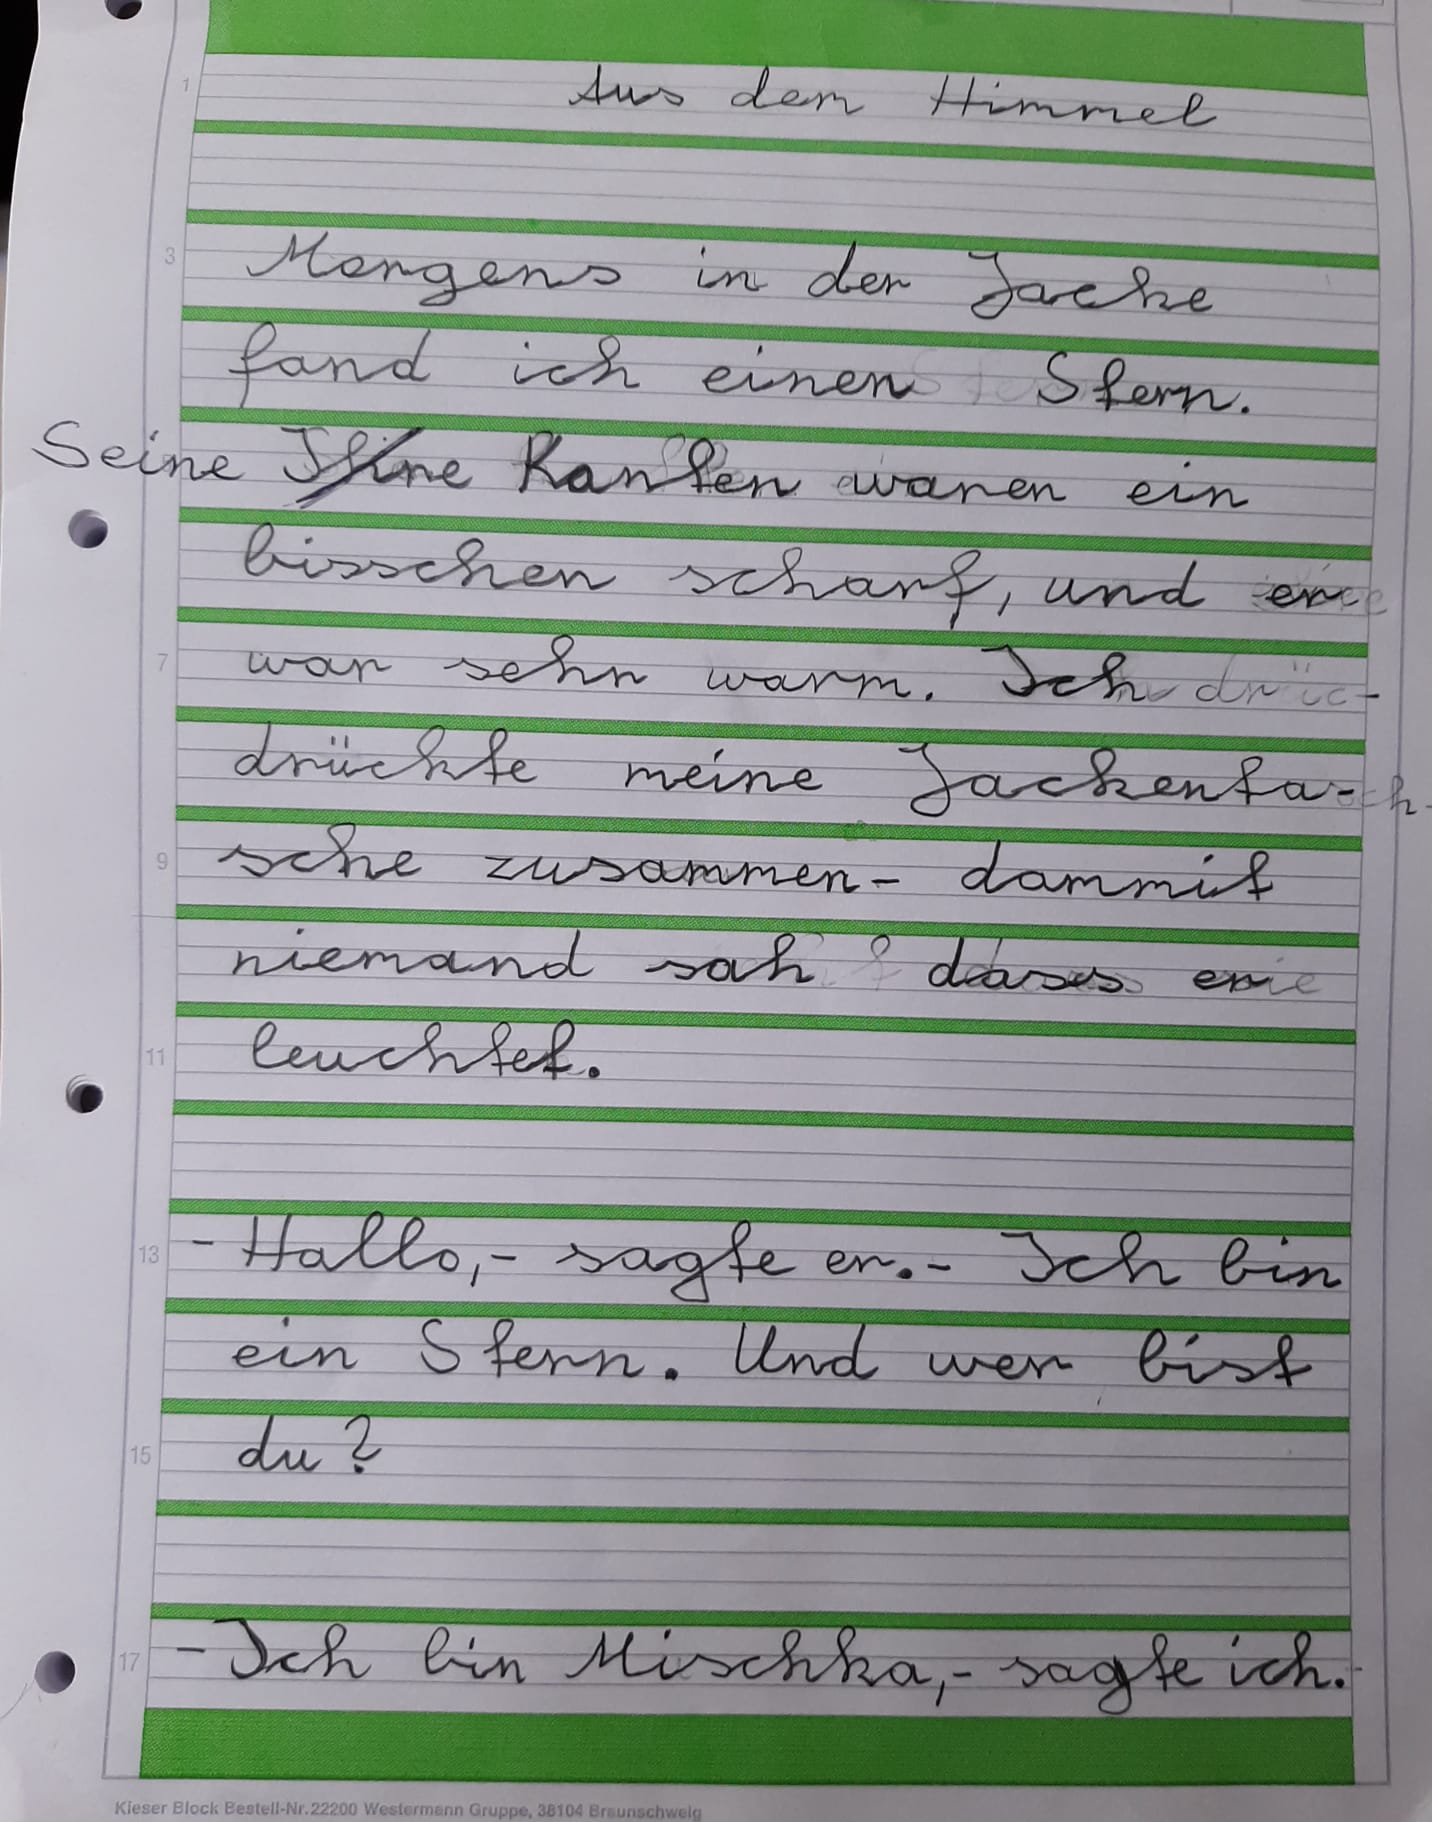 1 Aus dem Himmel
3 Morgens in der Jacke
fand ich einen Stern.
Seine Kanten waren ein
bisschen scharf, und er
7 war sehr warm. Ich
drückte meine Jackenta-
9 sche zusammen- dammit
niemand sah dass er
11 leuchtet.
13 - Hallo,- sagte er.- Ich bin
ein Stern. Und wer bist
15 du?
17 - Ich bin Mischka,- sagte ich.-
Kieser Block Bestell-Nr. 22200 Westermann Gruppe, 38104 Braunschweig